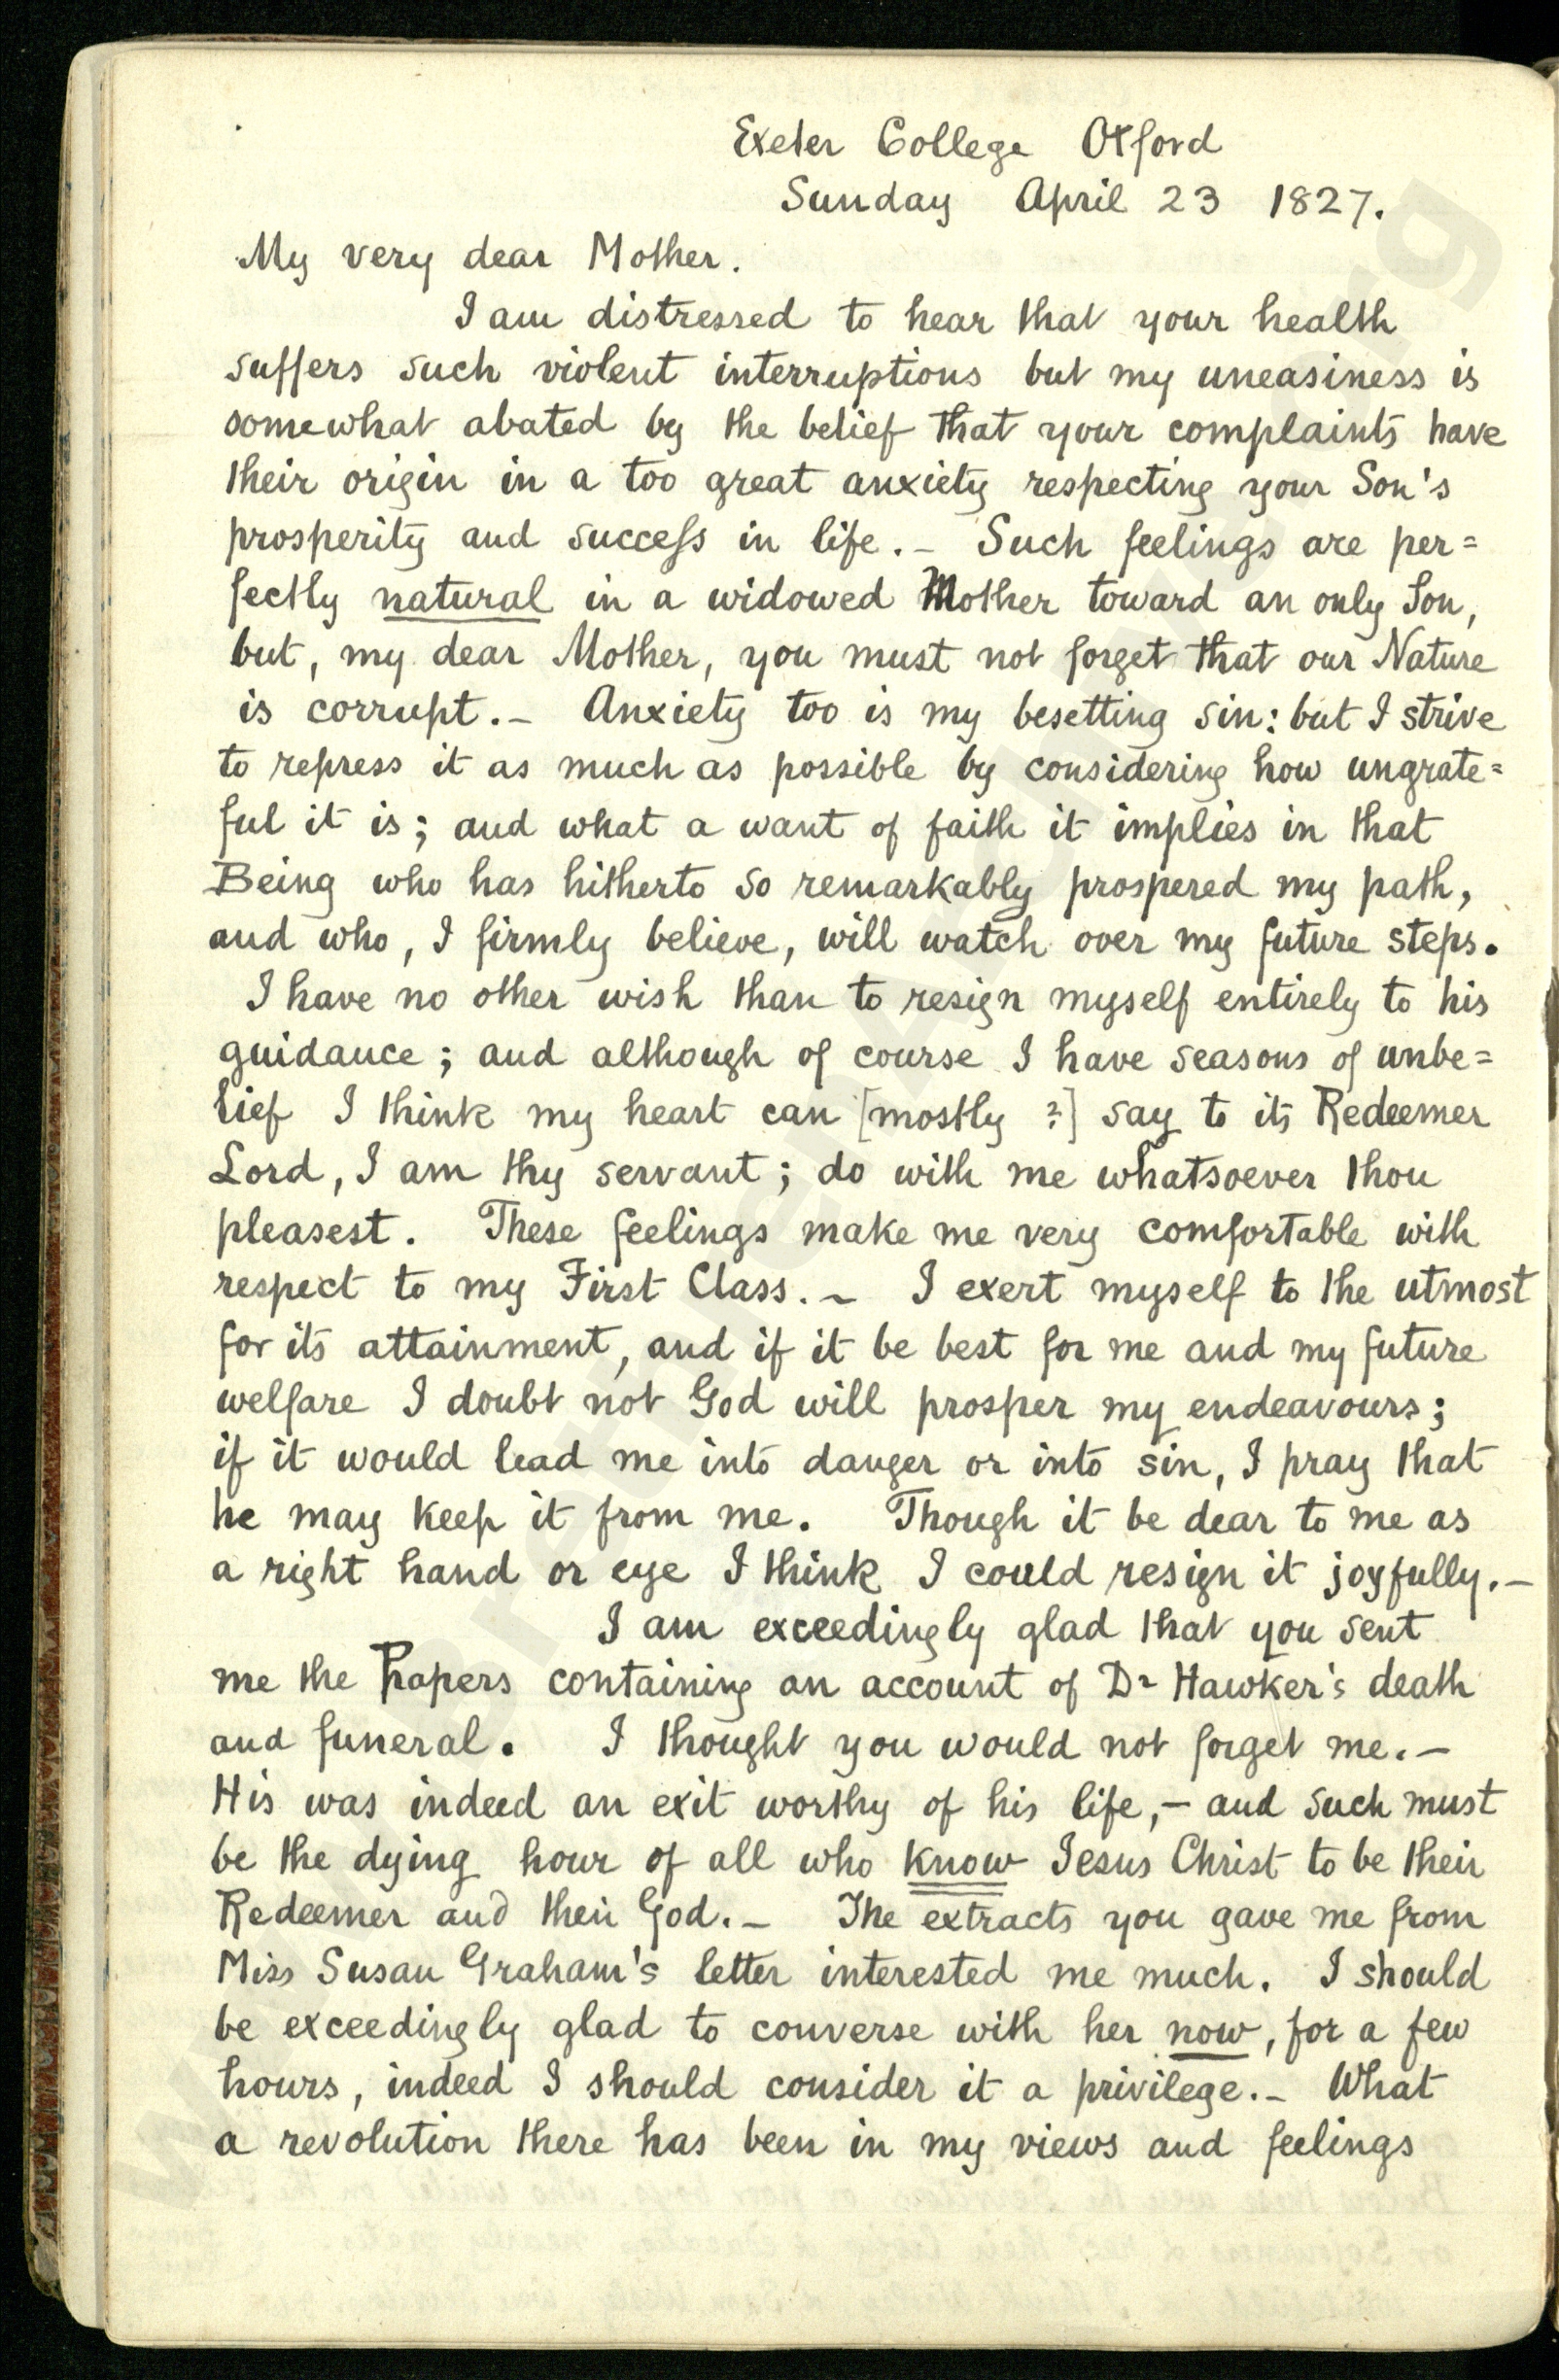 Exeter College Oxford
Sunday April 23 1827.
My very dear Mother.
I am distressed to hear that your health
suffers such violent interruptions but my uneasiness is
somewhat abated by the belief that your complaints have
their origin in a too great anxiety respecting your Son's
prosperity and success in life. – Such feelings are per=
fectly natural in a widowed Mother toward an only Son,
but, my dear Mother, you must not forget that our Nature
is corrupt. – Anxiety too is my besetting sin: but I strive
to repress it as much as possible by considering how ungrate=
ful it is; and what a want of faith it implies in that
Being who has hitherto so remarkably prospered my path,
and who, I firmly believe, will watch over my future steps.
I have no other wish than to resign myself entirely to his
guidance; and although of course I have seasons of unbe=
lief I think my heart can [mostly ?] say to its Redeemer
Lord, I am thy servant; do with me whatsoever thou
pleasest. These feelings make me very comfortable with
respect to my First Class. – I exert myself to the utmost
for its attainment, and if it be best for me and my future
welfare I doubt not God will prosper my endeavours;
if it would lead me into danger or into sin, I pray that
he may keep it from me. Though it be dear to me as
a right hand or eye I think I could resign it joyfully. –
I am exceedingly glad that you sent
me the Papers containing an account of Dr Hawker's death
and funeral. I thought you would not forget me. –
His was indeed an exit worthy of his life, – and such must
be the dying hour of all who know Jesus Christ to be their
Redeemer and their God. – The extracts you gave me from
Miss Susan Graham's letter interested me much. I should
be exceedingly glad to converse with her now, for a few
hours, indeed I should consider it a privilege. – What
a revolution there has been in my views and feelings